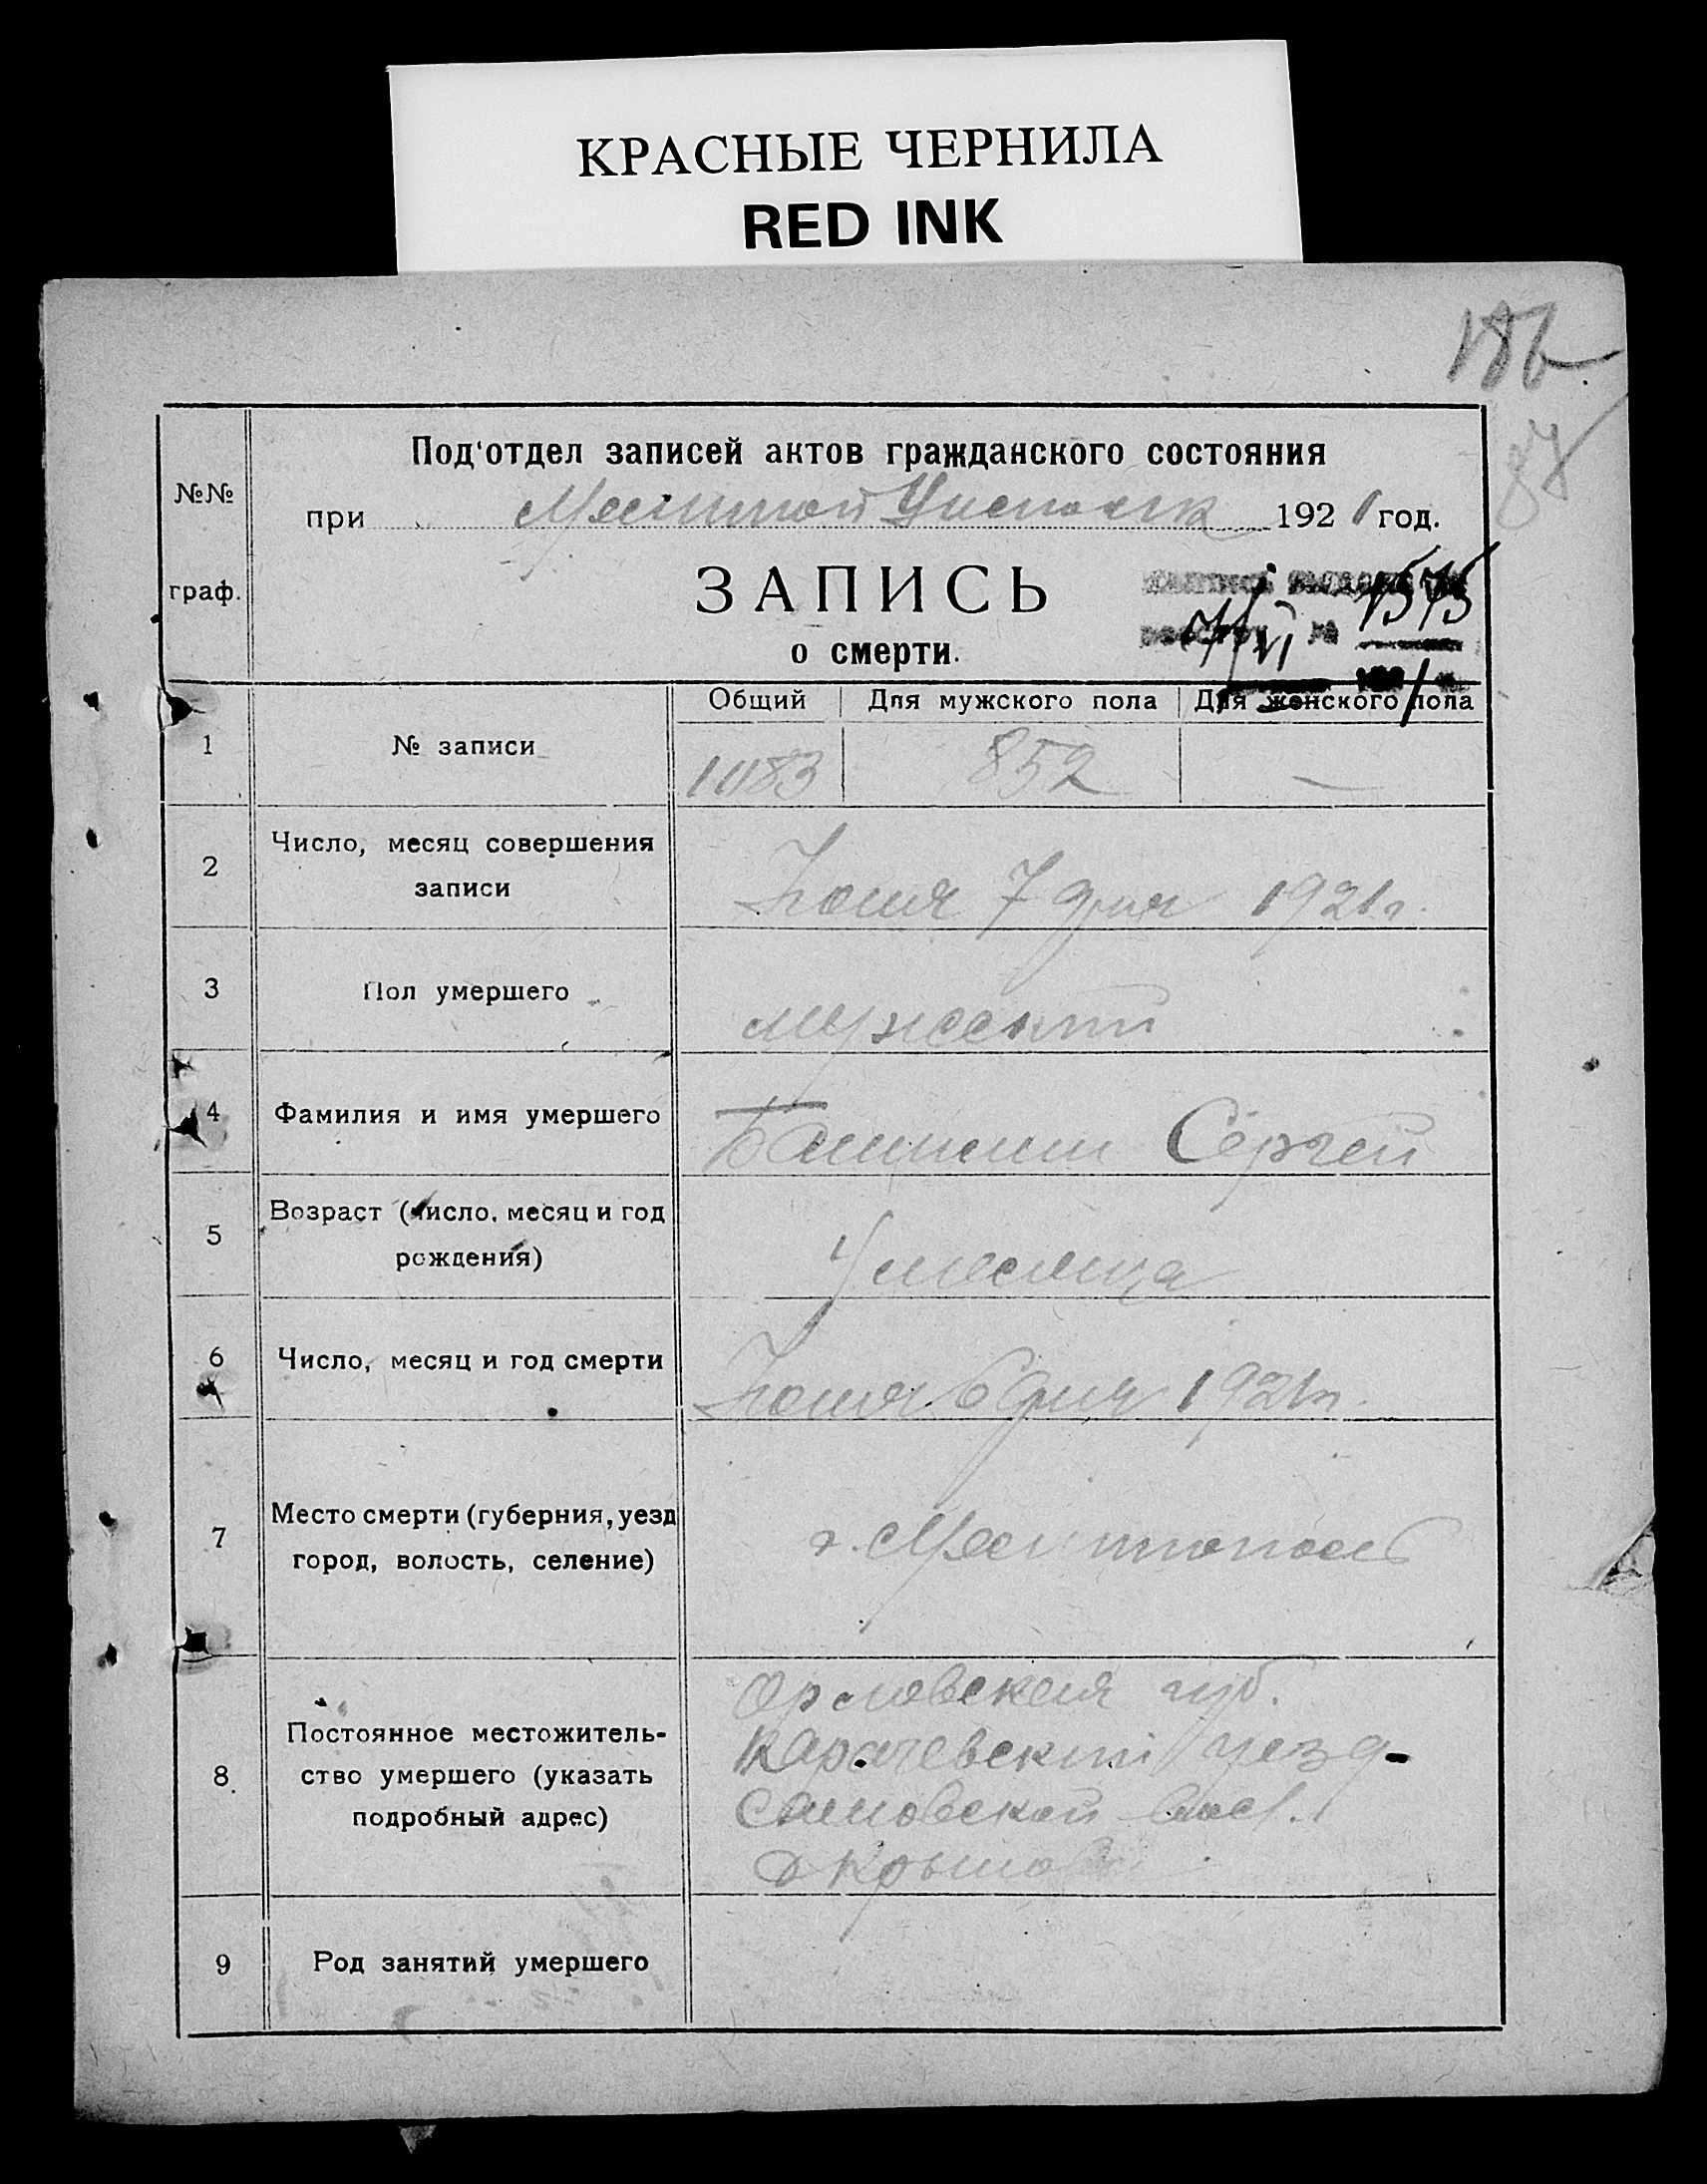 КРАСНЫЕ ЧЕРНИЛА
RED INK
186
Под'отдел записей актов гражданского состояния
при 1921 год.
№№
граф.
ЗАПИСЬ
о смерти.
7/VI № 1575
Общий Для мужского пола Для женского пола
1 № записи 1083 852 —
2 Число, месяц совершения
записи
Июня 7 дня 1921 г.
3 Пол умершего
мужский
4 Фамилия и имя умершего
Сергей
5 Возраст (число, месяц и год
рождения)
4 месяца
6 Число, месяц и год смерти
Июня 6 дня 1921 г.
7 Место смерти (губерния, уезд
город, волость, селение)
г. Мелитополь
8 Постоянное местожитель-
ство умершего (указать
подробный адрес)
Орловская губ.
Карачевский уезд-
9 Род занятий умершего